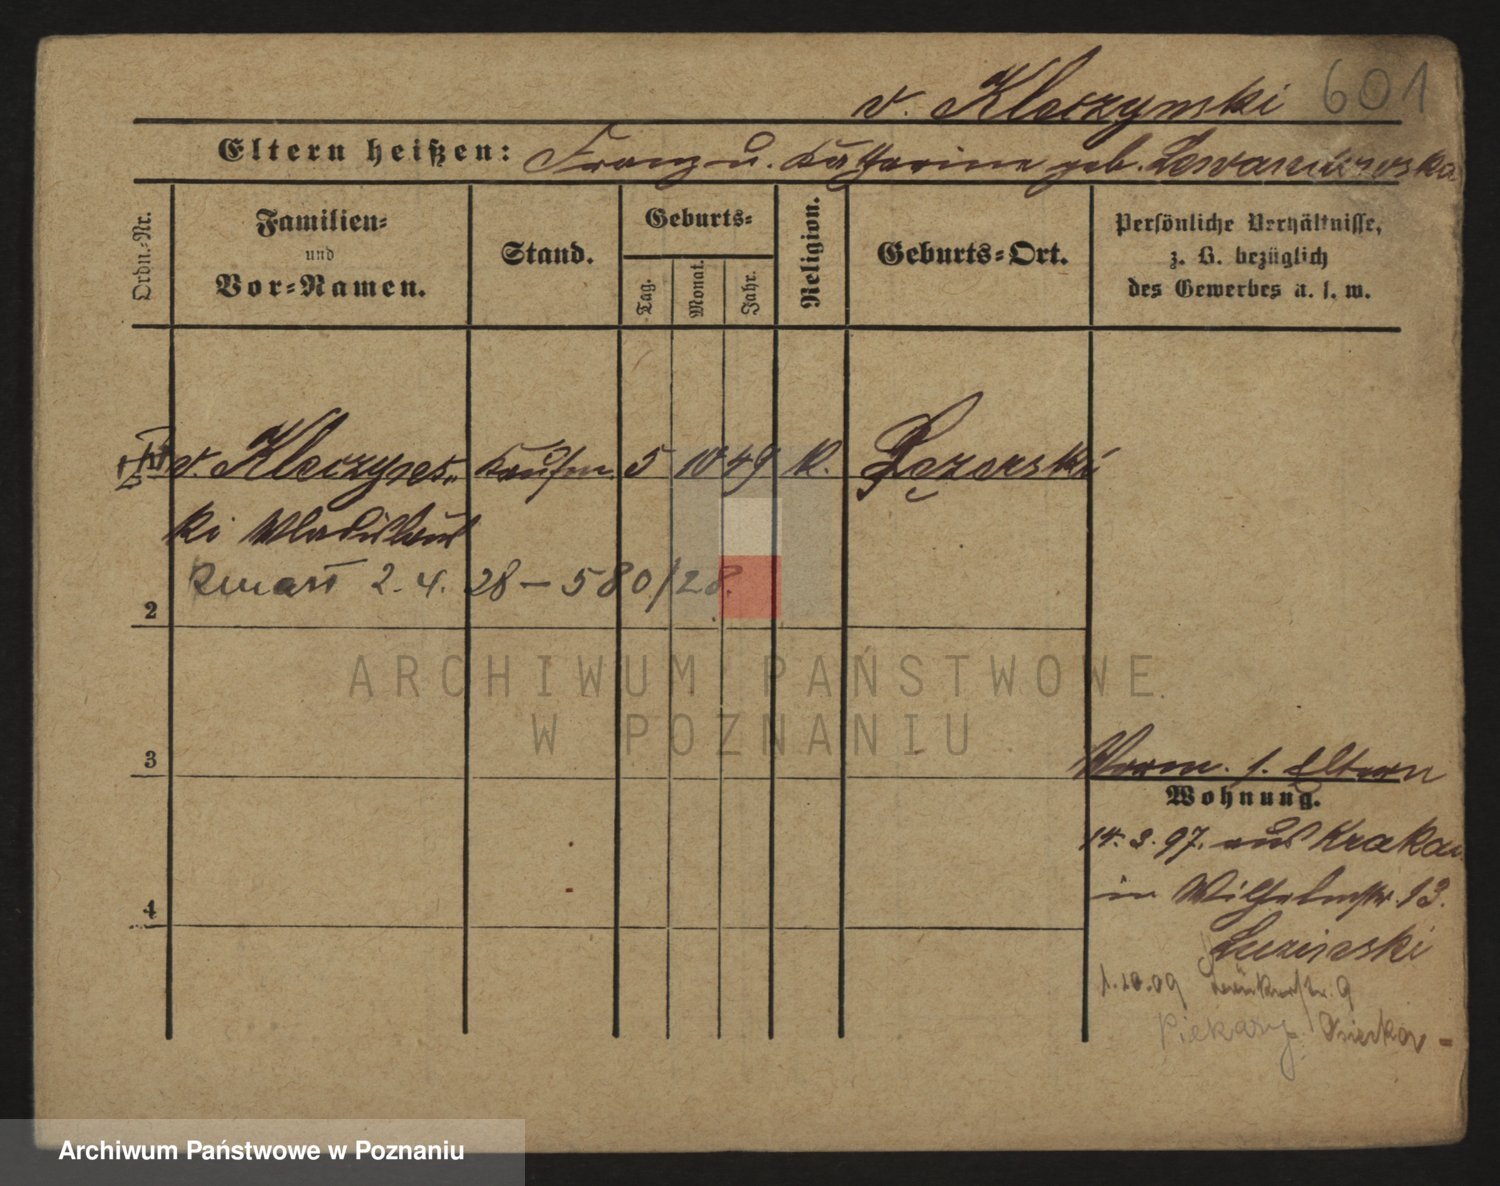 v. Kleczynski 601
Eltern heißen: Franz u. Katharina geb. Lewandowska
Ordn.-Nr.
Familien-
und
Vor-Namen.
Stand.
Geburts-
Tag.
Monat.
Jahr.
Religion.
Geburts-Ort.
Persönliche Verhältnisse,
z. B. bezüglich
des Gewerbes u. s. w.
v. Kleczyns- Kaufm. 5 10 49 K.
ki Wladislaus
zmarł 2. 4. 28 – 580/28.
2
3
4
Verm. s. Eltern
Wohnung.
14. 3. 97. aus Krakau
in Wilhelmstr. 13.
1.10.09 9
Piekary
ARCHIWUM PAŃSTWOWE
W POZNANIU
Archiwum Państwowe w Poznaniu